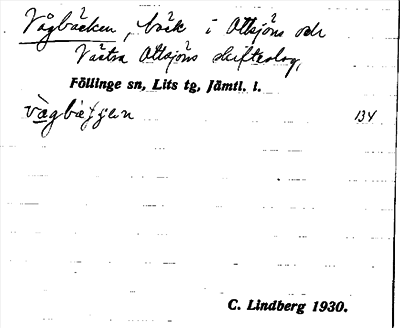 Vågbäcken, bäck i Ottsjöns och
Västra Ottsjöns skifteslag,
Föllinge sn, Lits tg, Jämtl. l.
134
C. Lindberg 1930.